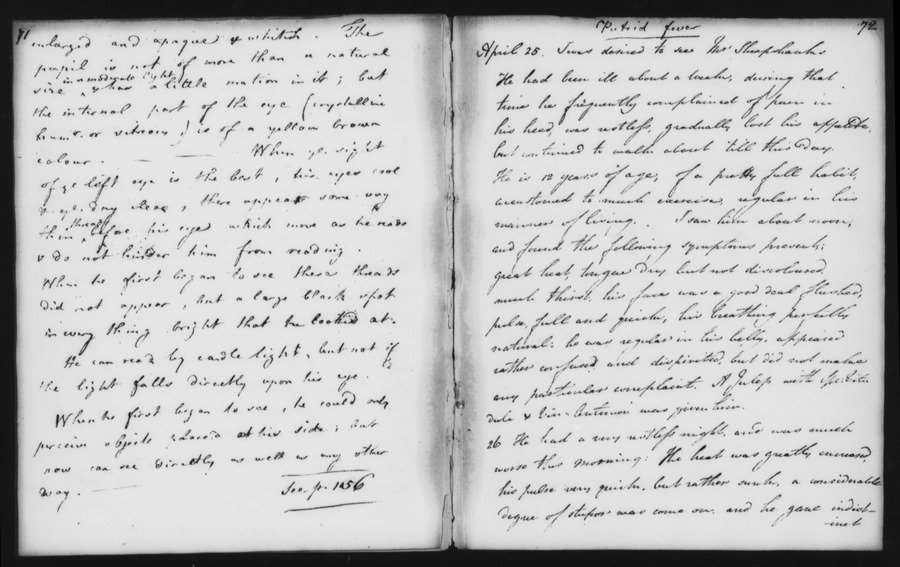 71
enlarged and opaque & whitish. The
pupil is not of more than a natural
in a moderate light
size & has a little motion in it; but
the internal part of the eye (crystalline
humr. or vitreous) is of a yellow brown
colour. When ye. sight
of ye left eye is the best, his eyes cool
& ye. day clear, there appear some very
threads
thin before his eye which move as he reads
& do not hinder him from reading.
When he first began to see these threads
did not appear, but a large black spot
in every thing bright that he looked at.
He can read by candle light, but not if
the light falls directly upon his eye.
When he first began to see, he could only
perceive objects placed at his side; but
now can see directly as well as any other
way.
See. p. 1056
72
Putrid fever
April 25. I was desired to see Mr Sheepshanks
He had been ill about a week, during that
time he frequently complained of pain in
his head, was restless, gradually lost his appetite.
but continued to walk about 'till this day.
He is 12 years of age; of a pretty full habit,
accustomed to much exercise, regular in his
manner of living. I saw him about noon,
and found the following symptoms present;
great heat, tongue dry but not discoloured,
much thirst, his face was a good deal flushed,
pulse full and quick, his breathing perfectly
natural: he was regular in his belly, appeared
rather confused and dispirited, but did not make
any particular complaint. A Julep with Spt. Vitr.
dulc & Vin: Antimon was given him.
26 He had a very restless night, and was much
worse this morning: The heat was greatly increased,
his pulse very quick, but rather sunk, a considerable
degree of stupor was come on, and he gave indist-
inct